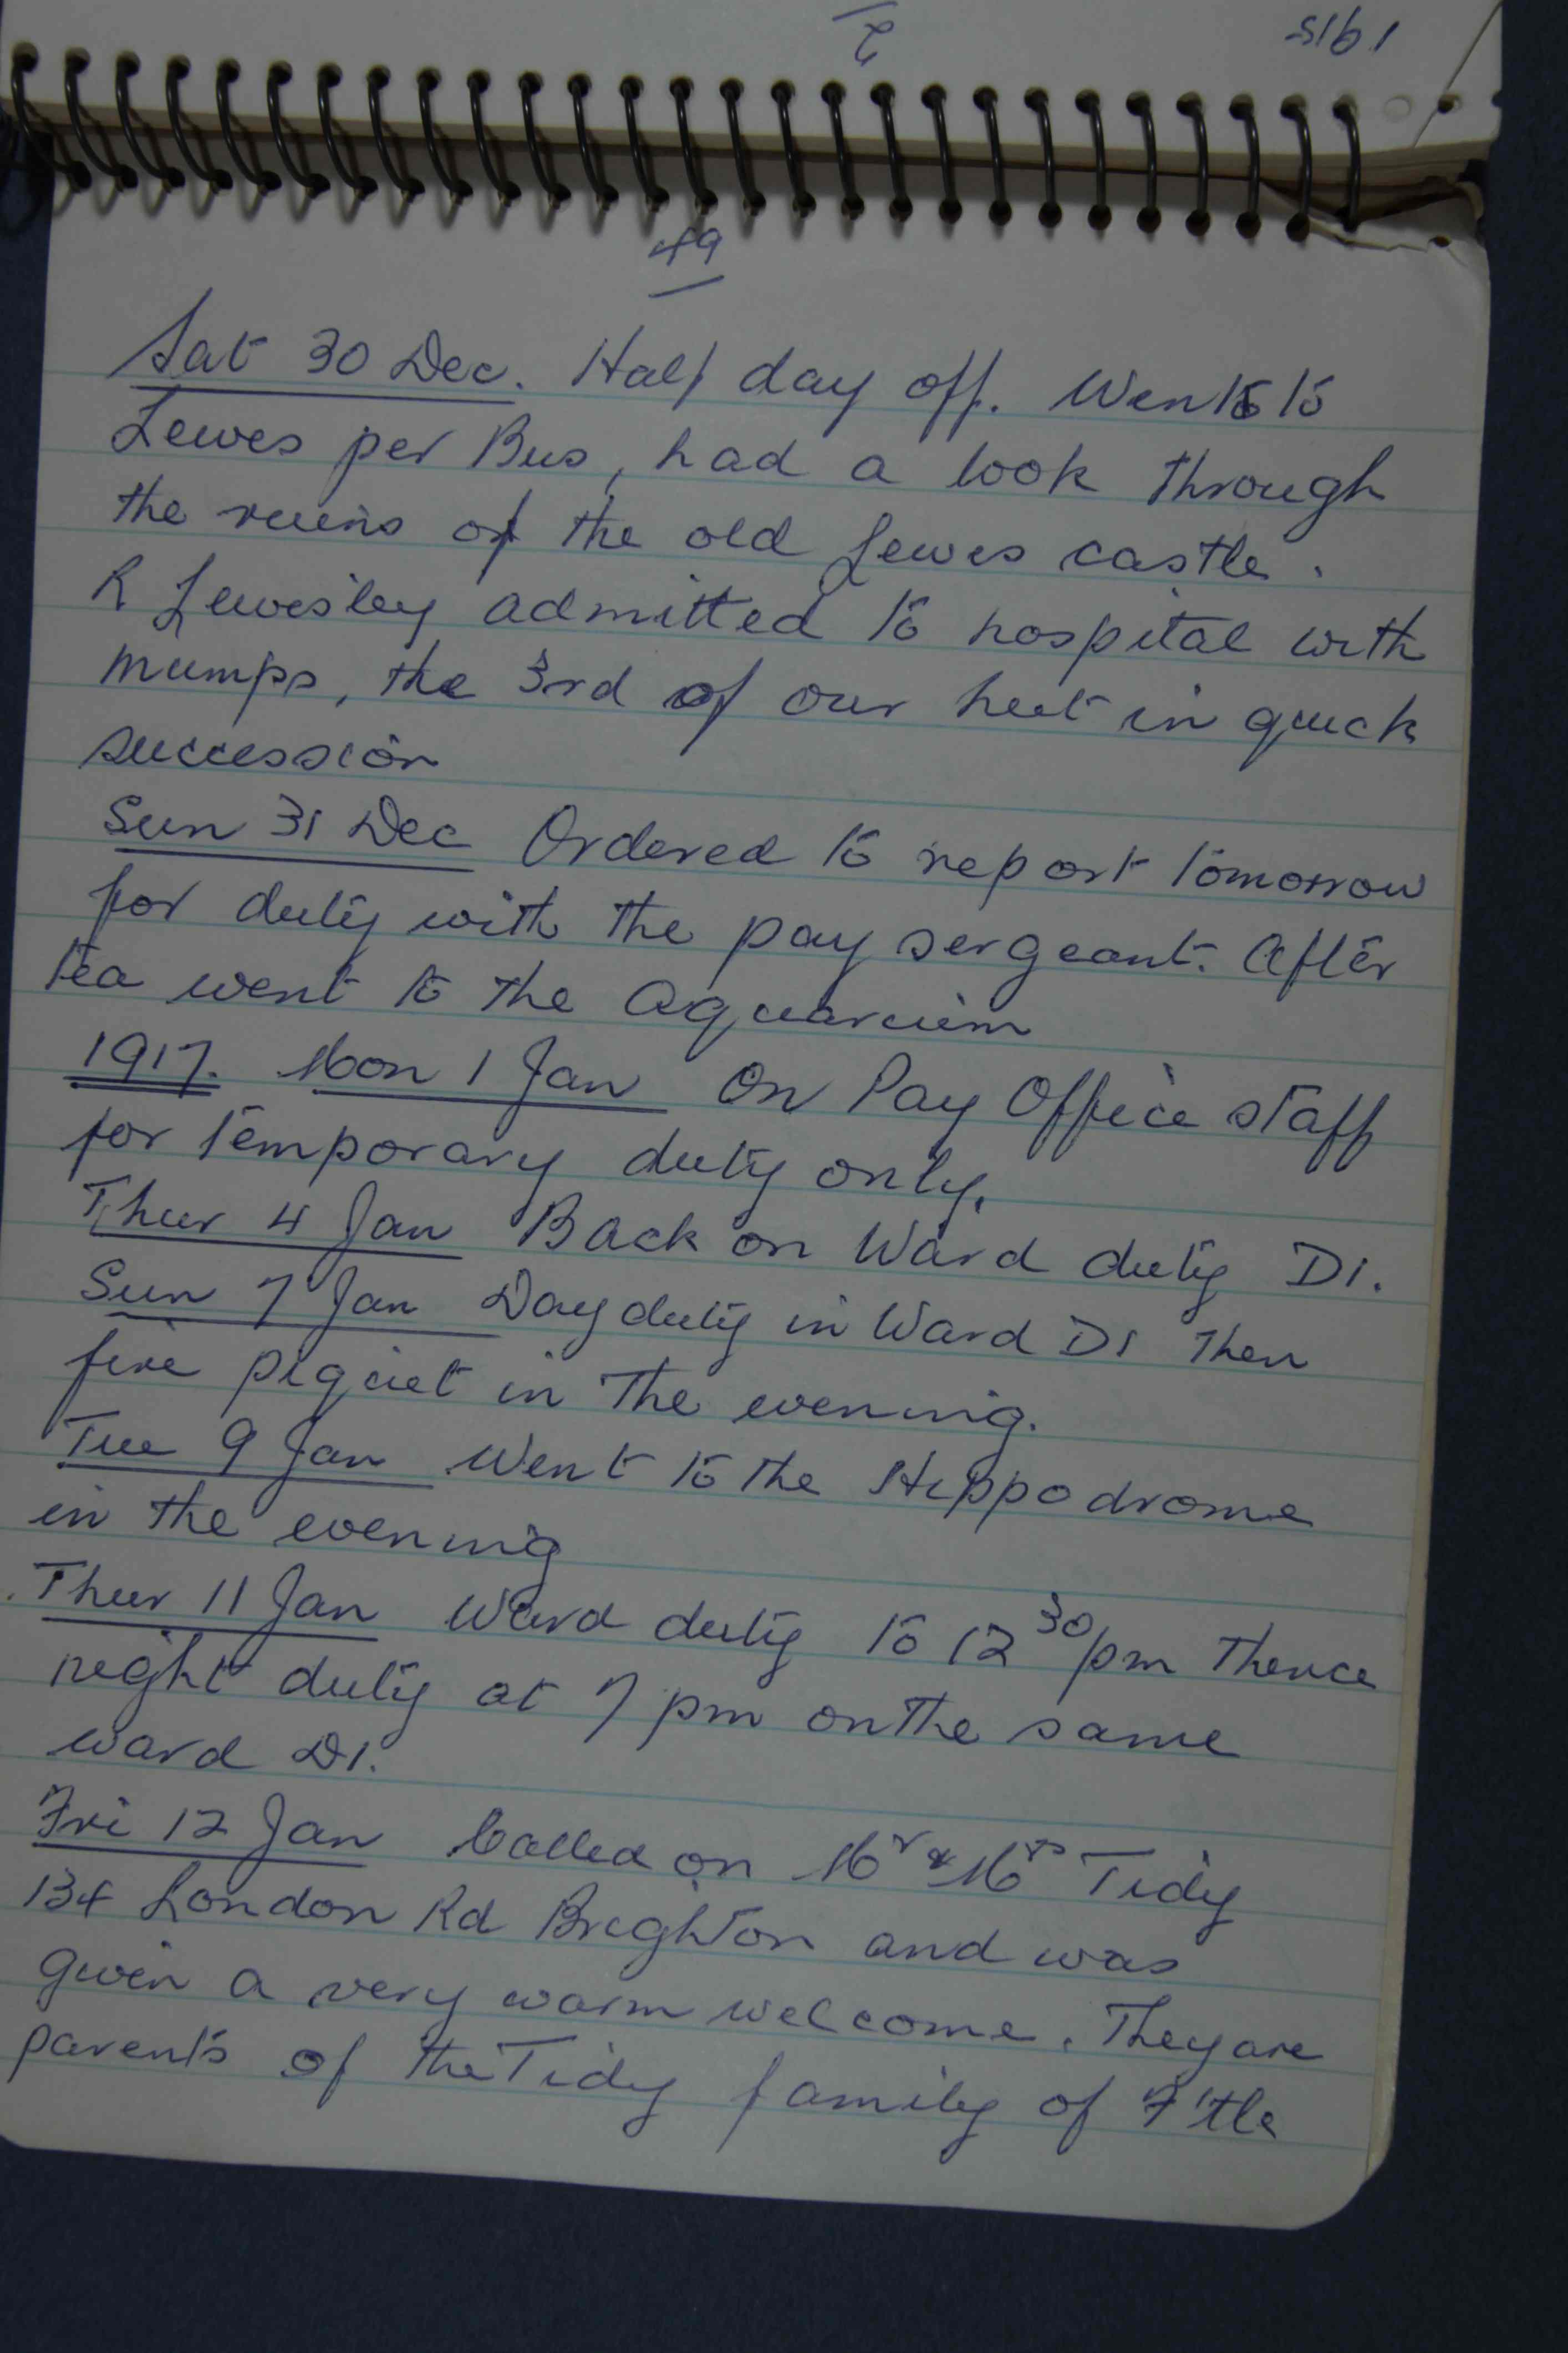 2
1915
49
Sat 30 Dec. Half day off. Went to
Lewes per Bus, had a look through
the ruins of the old Lewes castle.
R Lewesley admitted to hospital with
mumps, the 3rd of our hut in quick
succession
Sun 31 Dec Ordered to report tomorrow
for duty with the pay sergeant. After
tea went to the Aquarium
1917. Mon 1 Jan On Pay Office staff
for temporary duty only.
Thur 4 Jan Back on Ward duty D1.
Sun 7 Jan Day duty in Ward D1 then
fire piquet in the evening.
Tue 9 Jan Went to the Hippodrome
in the evening
Thur 11 Jan Ward duty to 12 30 pm thence
night duty at 7 pm on the same
ward D1.
Fri 12 Jan Called on Mr & Mrs Tidy
134 London Rd Brighton and was
given a very warm welcome. They are
parents of the Tidy family of F'tle